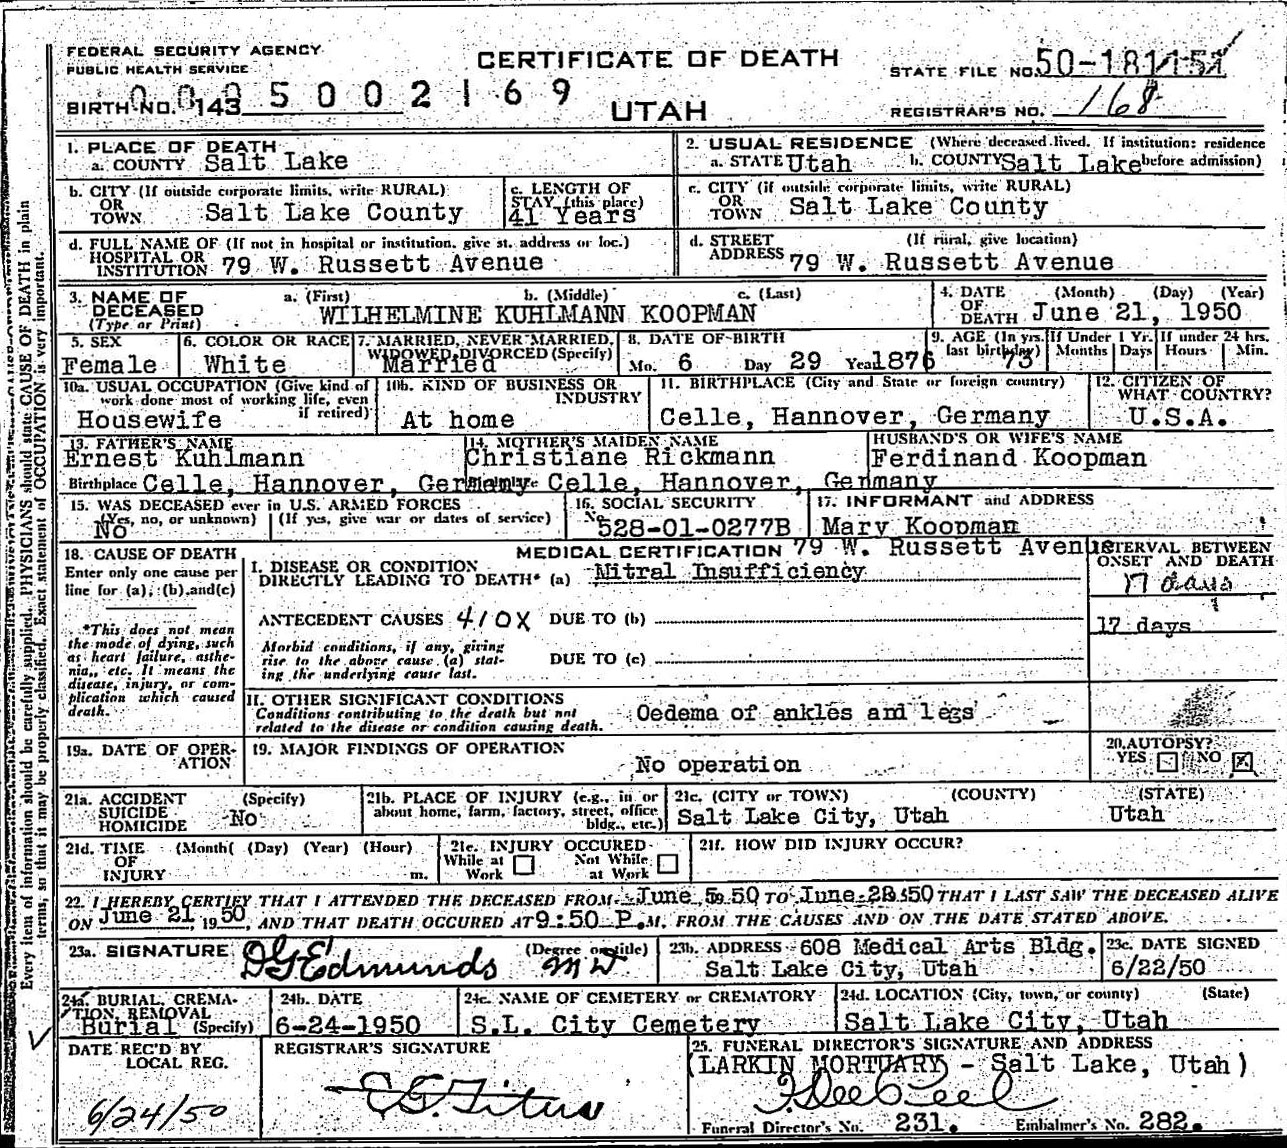 FEDERAL SECURITY AGENCY
PUBLIC HEALTH SERVICE
CERTIFICATE OF DEATH
STATE FILE NO. 50-181151
BIRTH NO. 143 0005002169
UTAH
REGISTRAR'S NO. 168
1. PLACE OF DEATH
a. COUNTY Salt Lake
2. USUAL RESIDENCE (Where deceased lived. If institution: residence before admission)
a. STATE Utah b. COUNTY Salt Lake
b. CITY (If outside corporate limits, write RURAL)
OR TOWN Salt Lake County
c. LENGTH OF STAY (this place)
41 Years
c. CITY (if outside corporate limits, write RURAL)
OR TOWN Salt Lake County
d. FULL NAME OF (If not in hospital or institution, give st. address or loc.)
HOSPITAL OR INSTITUTION 79 W. Russett Avenue
d. STREET ADDRESS (If rural, give location)
79 W. Russett Avenue
3. NAME OF DECEASED (Type or Print)
a. (First) b. (Middle) c. (Last)
WILHELMINE KUHLMANN KOOPMAN
4. DATE OF DEATH (Month) (Day) (Year)
June 21, 1950
5. SEX
Female
6. COLOR OR RACE
White
7. MARRIED, NEVER MARRIED, WIDOWED, DIVORCED (Specify)
Married
8. DATE OF BIRTH
Mo. 6 Day 29 Year 1876
9. AGE (In yrs. last birthday) 73
If Under 1 Yr. Months Days
If under 24 hrs. Hours Min.
10a. USUAL OCCUPATION (Give kind of work done most of working life, even if retired)
Housewife
10b. KIND OF BUSINESS OR INDUSTRY
At home
11. BIRTHPLACE (City and State or foreign country)
Celle, Hannover, Germany
12. CITIZEN OF WHAT COUNTRY?
U.S.A.
13. FATHER'S NAME
Ernest Kuhlmann
Birthplace Celle, Hannover, Germany
14. MOTHER'S MAIDEN NAME
Christiane Rickmann
Celle, Hannover, Germany
HUSBAND'S OR WIFE'S NAME
Ferdinand Koopman
15. WAS DECEASED ever in U.S. ARMED FORCES
(Yes, no, or unknown) (If yes, give war or dates of service)
No
16. SOCIAL SECURITY No.
528-01-0277B
17. INFORMANT and ADDRESS
Mary Koopman
79 W. Russett Avenue
18. CAUSE OF DEATH
Enter only one cause per line for (a), (b), and (c)
*This does not mean the mode of dying, such as heart failure, asthenia, etc. It means the disease, injury, or complication which caused death.
MEDICAL CERTIFICATION
I. DISEASE OR CONDITION DIRECTLY LEADING TO DEATH* (a) Mitral Insufficiency
INTERVAL BETWEEN ONSET AND DEATH
17 days
ANTECEDENT CAUSES 410X DUE TO (b)
17 days
Morbid conditions, if any, giving rise to the above cause (a) stating the underlying cause last.
DUE TO (c)
II. OTHER SIGNIFICANT CONDITIONS
Conditions contributing to the death but not related to the disease or condition causing death.
Oedema of ankles and legs
19a. DATE OF OPERATION
19. MAJOR FINDINGS OF OPERATION
No operation
20. AUTOPSY?
YES NO X
21a. ACCIDENT SUICIDE HOMICIDE (Specify)
No
21b. PLACE OF INJURY (e.g., in or about home, farm, factory, street, office bldg., etc.)
21c. (CITY or TOWN) (COUNTY) (STATE)
Salt Lake City, Utah Utah
21d. TIME OF INJURY (Month( (Day) (Year) (Hour) m.
21e. INJURY OCCURED
While at Work Not While at Work
21f. HOW DID INJURY OCCUR?
22. I HEREBY CERTIFY THAT I ATTENDED THE DECEASED FROM June 5, 1950 TO June 21 1950 THAT I LAST SAW THE DECEASED ALIVE
ON June 21 1950, AND THAT DEATH OCCURED AT 9:50 P.M. FROM THE CAUSES AND ON THE DATE STATED ABOVE.
23a. SIGNATURE (Degree or title)
DG Edmunds MD
23b. ADDRESS 608 Medical Arts Bldg.
Salt Lake City, Utah
23c. DATE SIGNED
6/22/50
24a. BURIAL, CREMATION, REMOVAL (Specify)
Burial
24b. DATE
6-24-1950
24c. NAME OF CEMETERY or CREMATORY
S.L. City Cemetery
24d. LOCATION (City, town, or county) (State)
Salt Lake City, Utah
DATE REC'D BY LOCAL REG.
6/24/50
REGISTRAR'S SIGNATURE
25. FUNERAL DIRECTOR'S SIGNATURE AND ADDRESS
(LARKIN MORTUARY - Salt Lake, Utah)
Funeral Director's No. 231. Embalmer's No. 282.
Every item of information should be carefully supplied. PHYSICIANS should state CAUSE OF DEATH in plain
terms, so that it may be properly classified. Exact statement of OCCUPATION is very important.